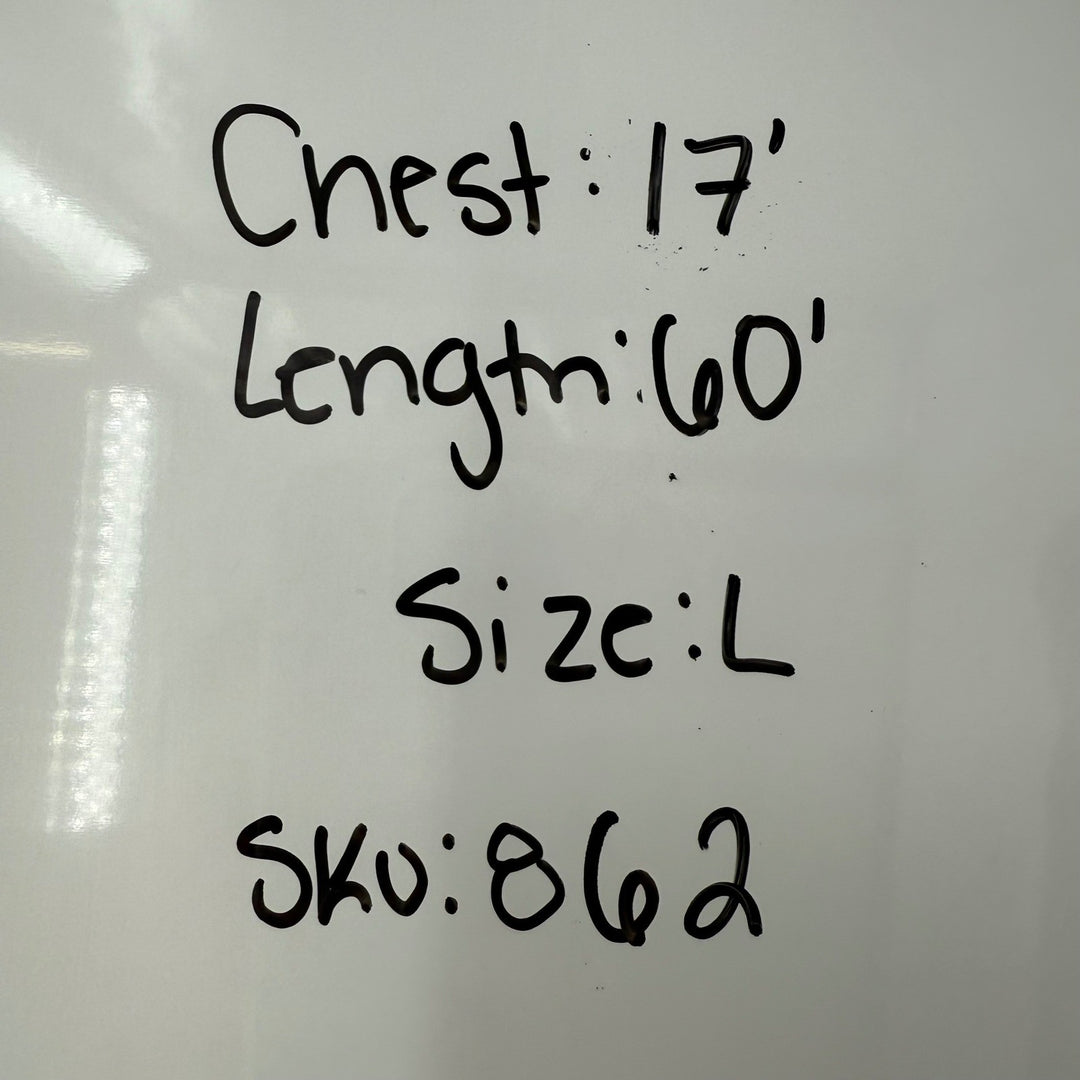 Chest: 17'
Length: 60'
Size: L
SKU: 862